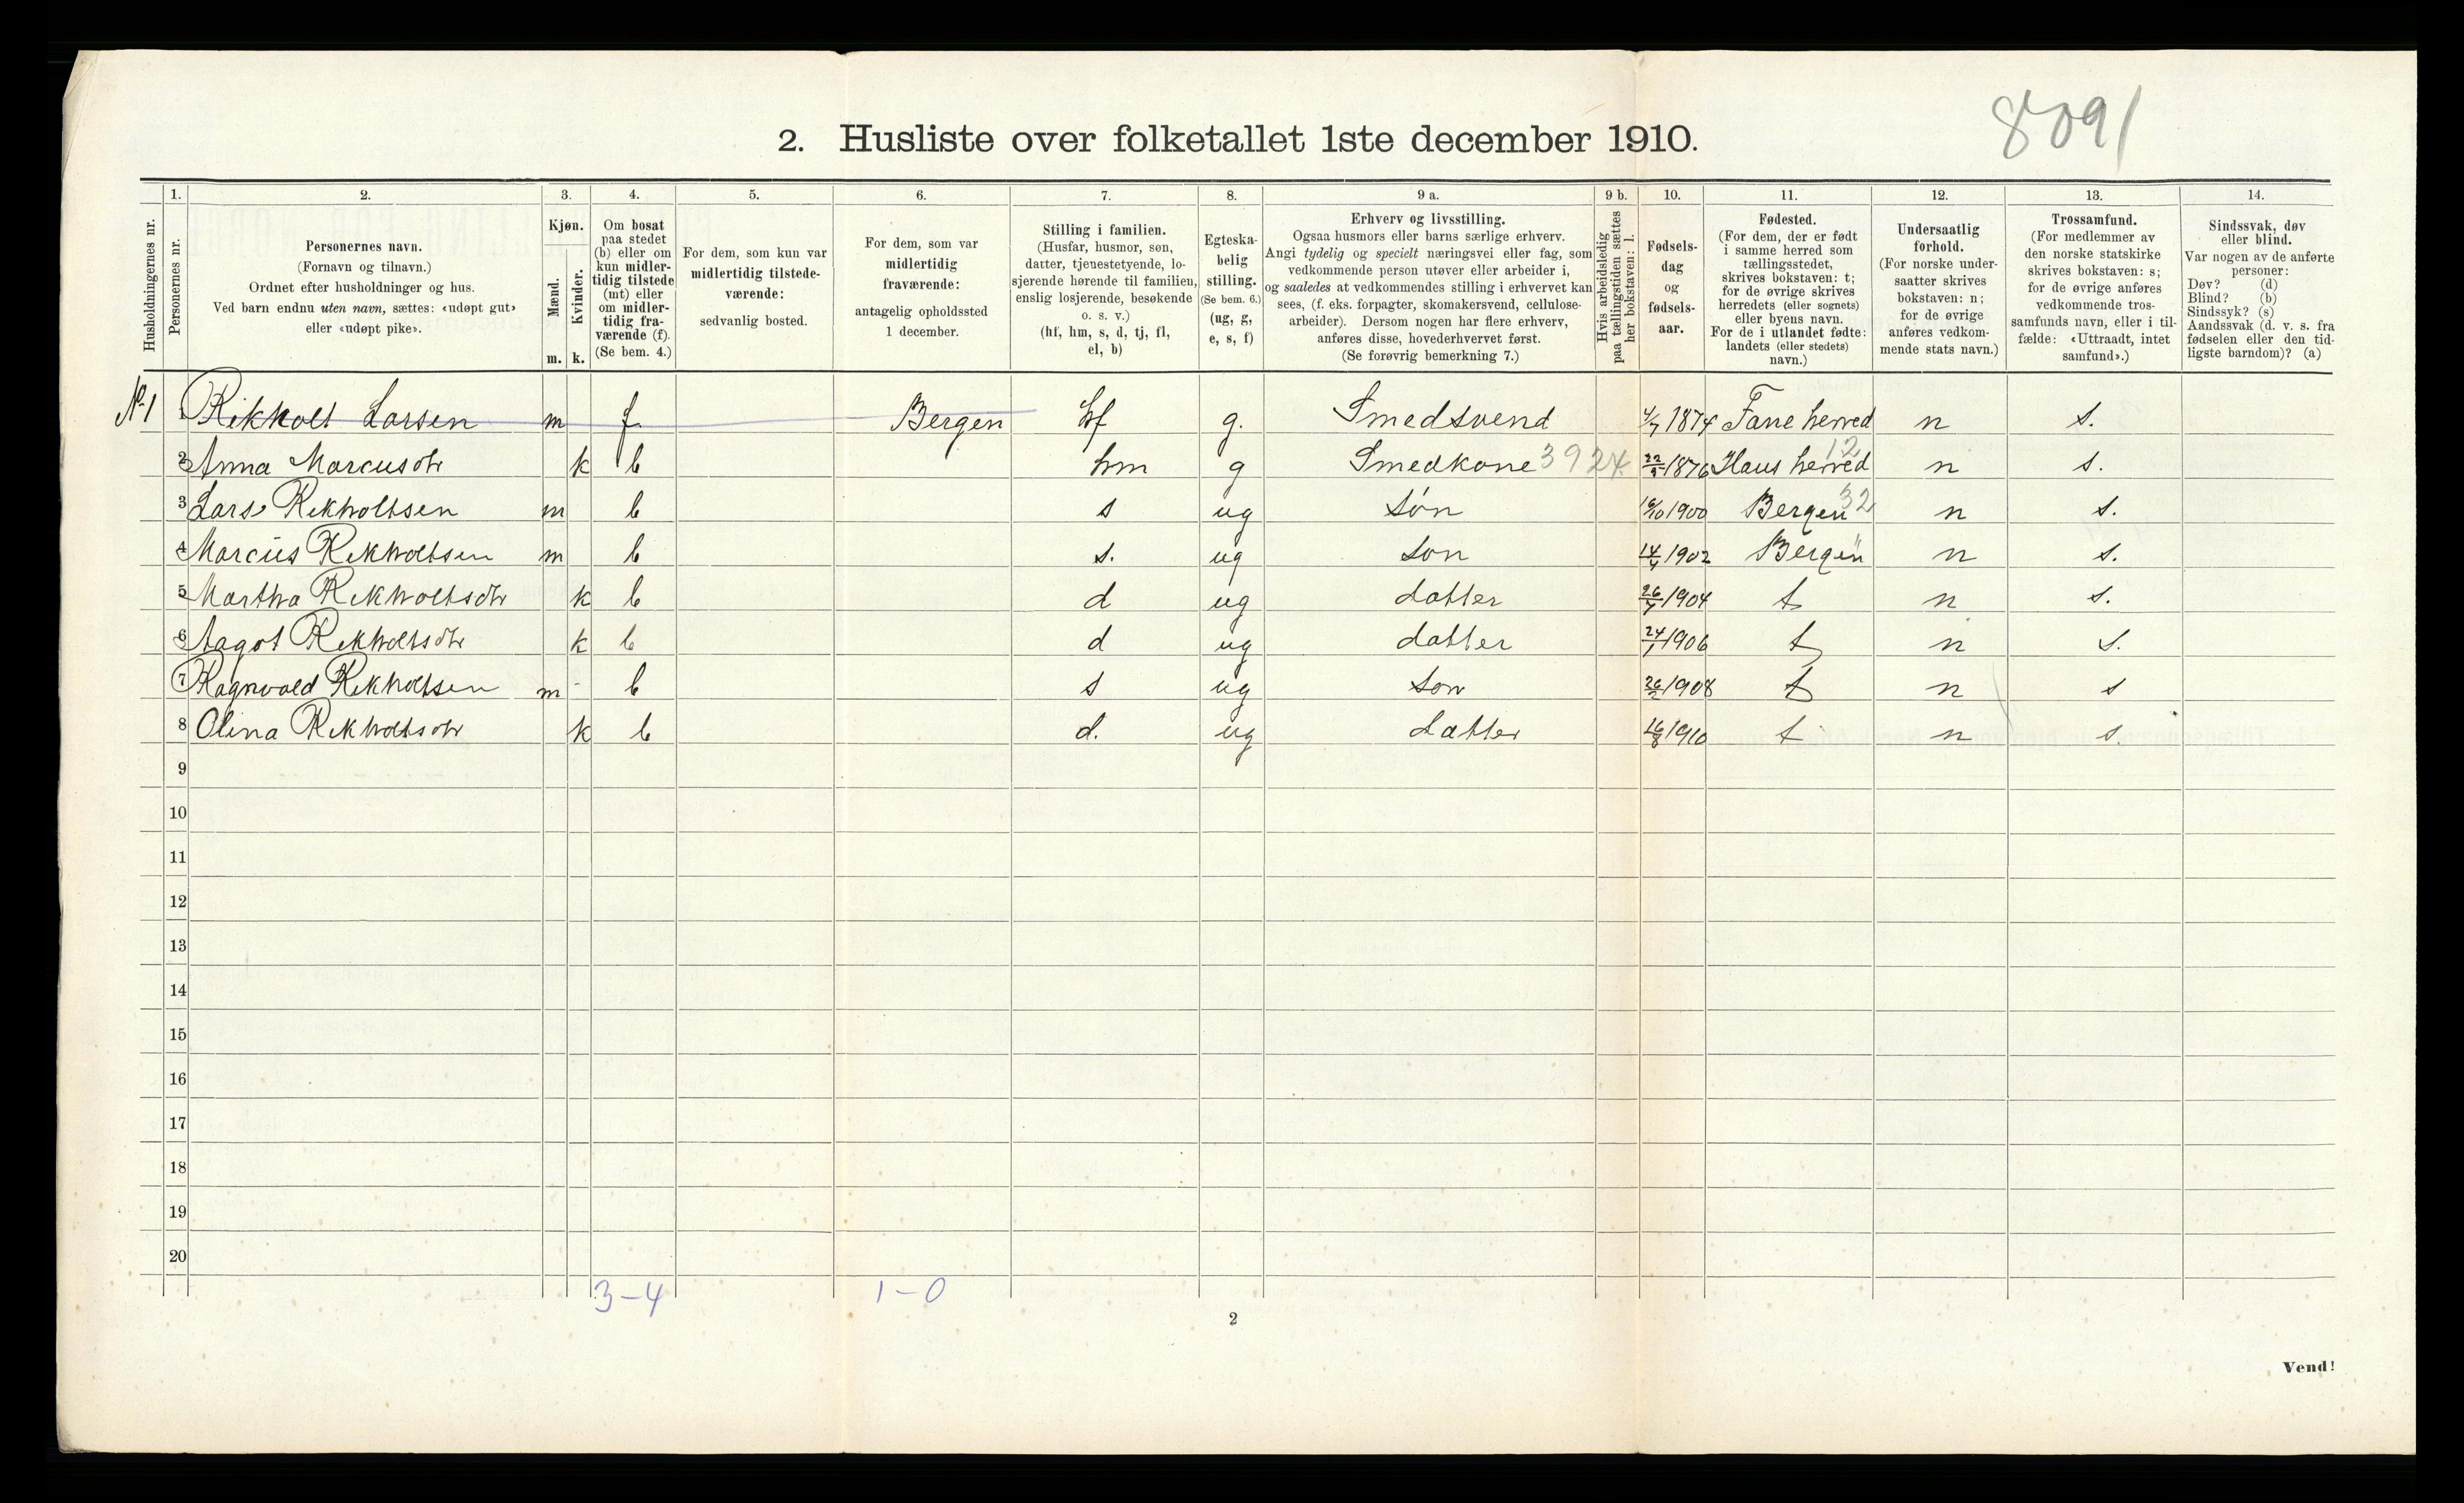 8091
2. Husliste over folketallet 1ste december 1910.
Husholdningernes nr.
1.
Personernes nr.
2.
Personernes navn.
(Fornavn og tilnavn.)
Ordnet efter husholdninger og hus.
Ved barn endnu uten navn, sættes: «udøpt gut»
eller «udøpt pike».
3.
Kjøn.
Mænd.
Kvinder.
m. k.
4.
Om bosat
paa stedet
(b) eller om
kun midler-
tidig tilstede
(mt) eller
om midler-
tidig fra-
værende (f).
(Se bem. 4.)
5.
For dem, som kun var
midlertidig tilstede-
værende:
sedvanlig bosted.
6.
For dem, som var
midlertidig
fraværende:
antagelig opholdssted
1 december.
7.
Stilling i familien.
(Husfar, husmor, søn,
datter, tjenestetyende, lo-
sjerende hørende til familien,
enslig losjerende, besøkende
o. s. v.)
(hf, hm, s, d, tj, fl,
el, b)
8.
Egteska-
belig
stilling.
(Se bem. 6.)
(ug, g,
e, s, f)
9 a.
Erhverv og livsstilling.
Ogsaa husmors eller barns særlige erhverv.
Angi tydelig og specielt næringsvei eller fag, som
vedkommende person utøver eller arbeider i,
og saaledes at vedkommendes stilling i erhvervet kan
sees, (f. eks. forpagter, skomakersvend, cellulose-
arbeider). Dersom nogen har flere erhverv,
anføres disse, hovederhvervet først.
(Se forøvrig bemerkning 7.)
9 b.
Hvis arbeidsledig
paa tællingstiden sættes
her bokstaven: l.
10.
Fødsels-
dag
og
fødsels-
aar.
11.
Fødested.
(For dem, der er født
i samme herred som
tællingsstedet,
skrives bokstaven: t;
for de øvrige skrives
herredets (eller sognets)
eller byens navn.
For de i utlandet fødte:
landets (eller stedets)
navn.)
12.
Undersaatlig
forhold.
(For norske under-
saatter skrives
bokstaven: n;
for de øvrige
anføres vedkom-
mende stats navn.)
13.
Trossamfund.
(For medlemmer av
den norske statskirke
skrives bokstaven: s;
for de øvrige anføres
vedkommende tros-
samfunds navn, eller i til-
fælde: «Uttraadt, intet
samfund».)
14.
Sindssvak, døv
eller blind.
Var nogen av de anførte
personer:
Døv? (d)
Blind? (b)
Sindssyk? (s)
Aandssvak (d. v. s. fra
fødselen eller den tid-
ligste barndom)? (a)
No 1 1 Rikholt Larsen m f. Bergen hf g. Smedsvend 4/7 1874 Fane herred n s.
2 Anna Marcusdtr k b hm g Smedkone 3924 1876 Haus herred 12 n s.
3 Lars Rekholtsen m b s ug søn 1900 Bergen 32 n s.
4 Marcus Rekholtsen m b s. ug søn 1902 Bergen " n s.
5 Martha Rekholtsdtr k b d ug datter 1904 t n s.
6 Aagot Rekholtsdtr k b d ug datter 24/1 1906 t n s.
7 Ragnvald Rekholtsen m b s ug søn 26/2 1908 t n s
8 Olina Rekholtsdtr k b d. ug datter 16/8 1910 t n s.
9
10
11
12
13
14
15
16
17
18
19
20
3-4 1-0
2
Vend!